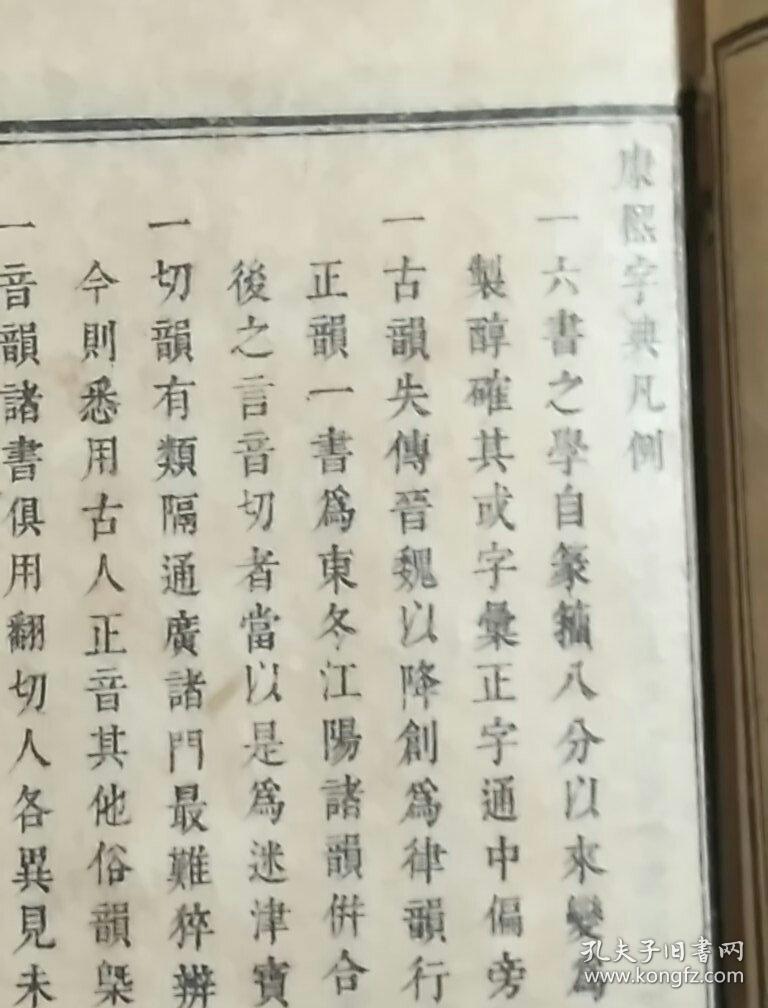 康熙字典凡例
一六書之學自篆籀八分以來變爲
製醇確其或字彙正字通中偏旁
一古韻失傳晉魏以降創爲律韻行
正韻一書爲東冬江陽諸韻併合
後之言音切者當以是爲迷津寶
一切韻有類隔通廣諸門最難猝辨
今則悉用古人正音其他俗韻槩
一音韻諸書俱用翻切人各異見未
孔夫子旧書网
www.kongfz.com